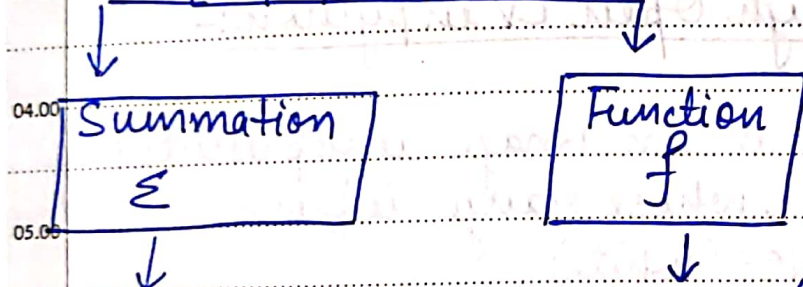 04.00 Summation Function
Σ f
05.00